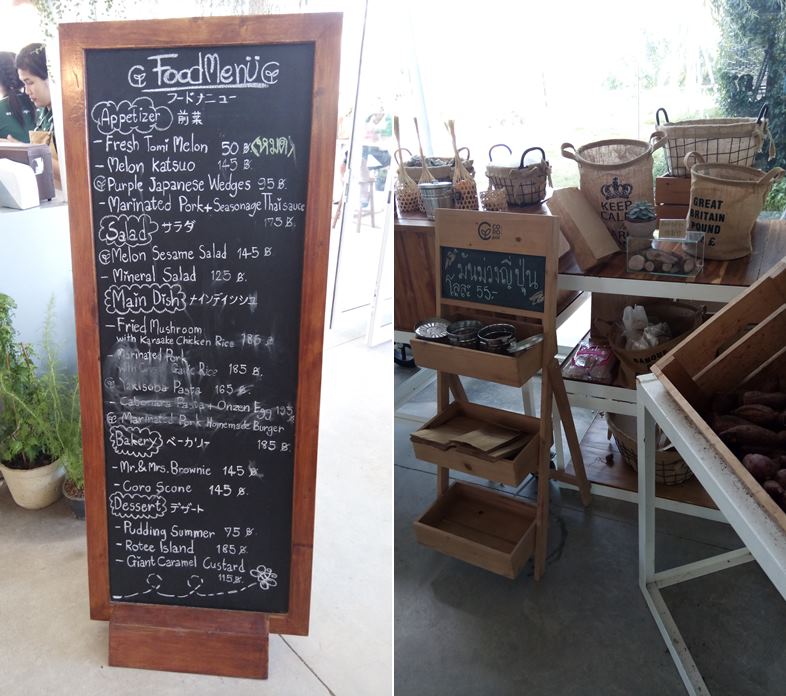 Food Menu
フードメニュー
Appetizer 前菜
- Fresh Tomi Melon 50 ฿ (หมด)
- Melon Katsuo 145 ฿.
Purple Japanese Wedges 95 ฿.
- Marinated Pork + Seasonage Thai sauce
175 ฿.
Salad サラダ
Melon Sesame Salad 145 ฿.
- Mineral Salad 125 ฿.
Main Dish メインディッシュ
- Fried Mushroom
with Karaake Chicken Rice 185 ฿.
- Marinated Pork
Garlic Rice 185 ฿.
Yakisoba Pasta 165 ฿.
- Cabonara Pasta + Onzen Egg 195
Marinated Pork Homemade Burger
185 ฿.
Bakery ベーカリー
- Mr.&Mrs. Brownie 145 ฿.
- Coro Scone 145 ฿.
Dessert デザート
- Pudding Summer 75 ฿.
- Rotee Island 185 ฿.
- Giant Caramel Custard
115 ฿.
CO
RO
มันม่วงญี่ปุ่น
โลละ 55.-
KEEP
CALM
GREAT
BRITAIN
POUND
£